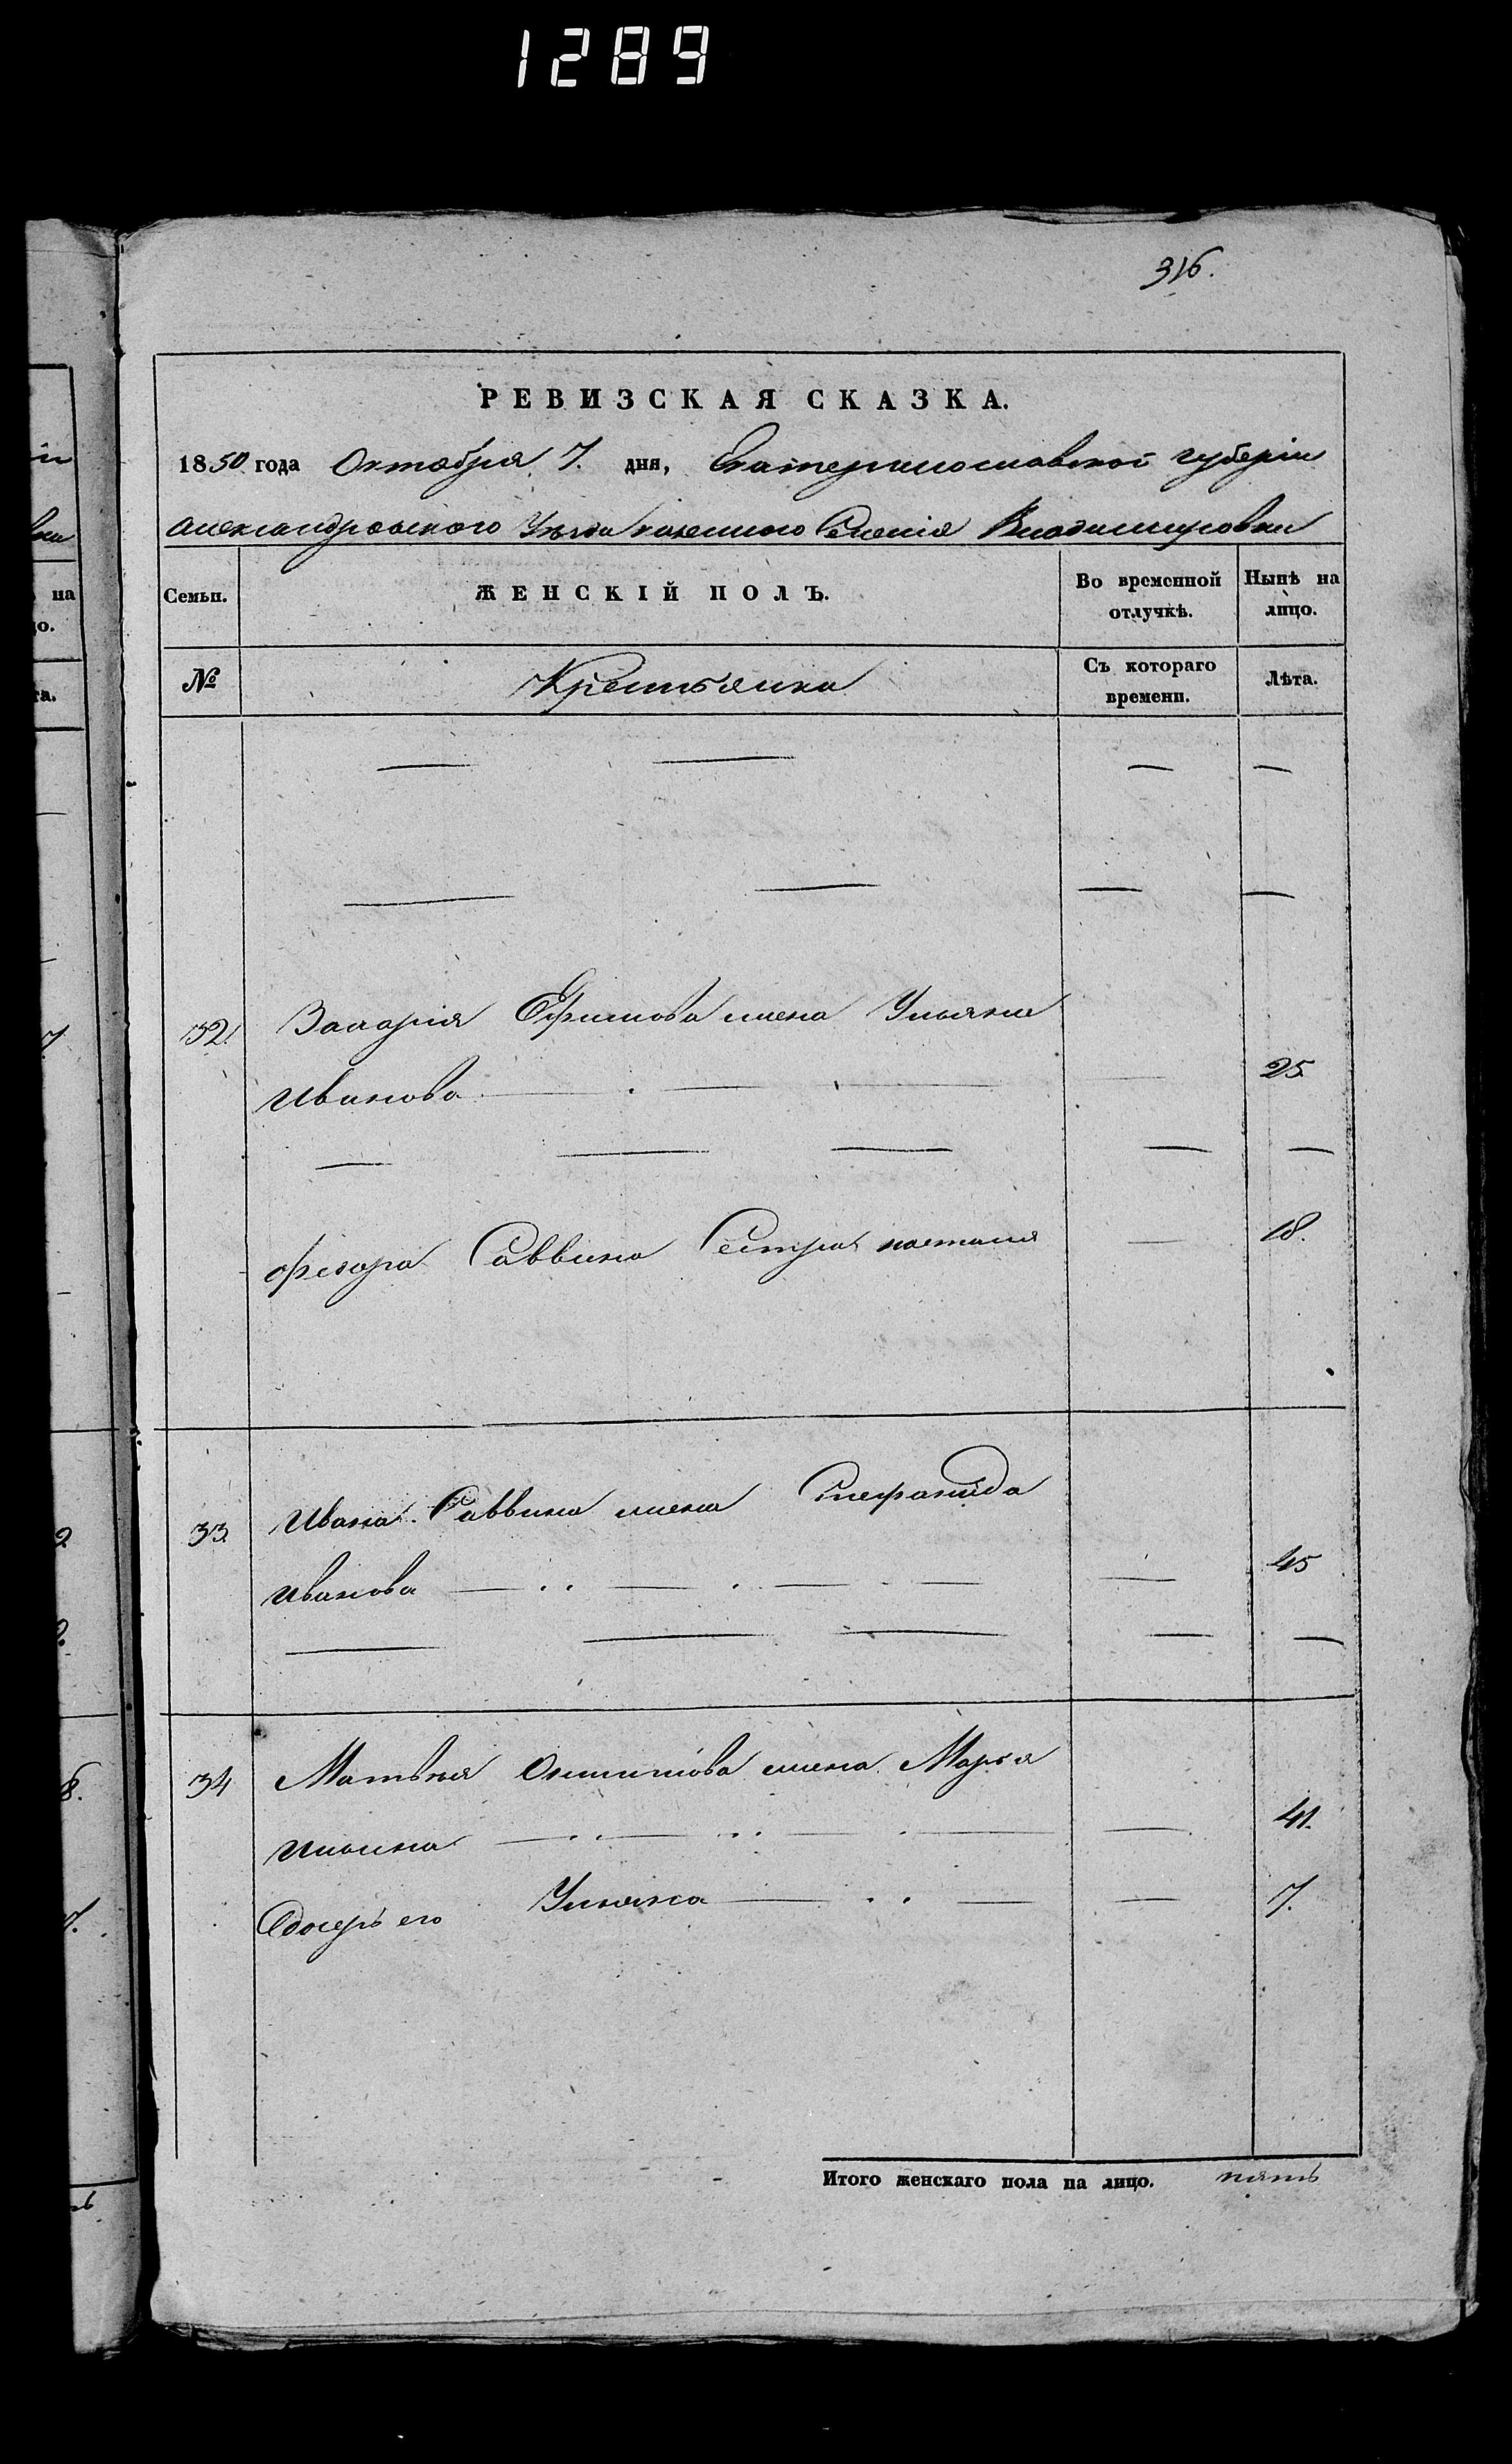 1289
316.
РЕВИЗСКАЯ СКАЗКА.
1850 года Октября 7. дня, Екатеринославской губерніи
Александровского Уезда казенного Селенія Владимировки
Семьи. ЖЕНСКІЙ ПОЛЪ. Во временной отлучкѣ. Нынѣ на лицо.
№ Крестьянка Съ котораго времени. Лѣта.
32. Захарія Ефимова жена Ульяна
Иванова 25
Федора Саввина Сестра наталия 18.
33. Ивана Саввина жена Стефанида
Иванова 45
34 Матвея Осиппова жена Марья
Ильина 41.
Єдочерь его Ульяна 7.
Итого женскаго пола на лицо. пять